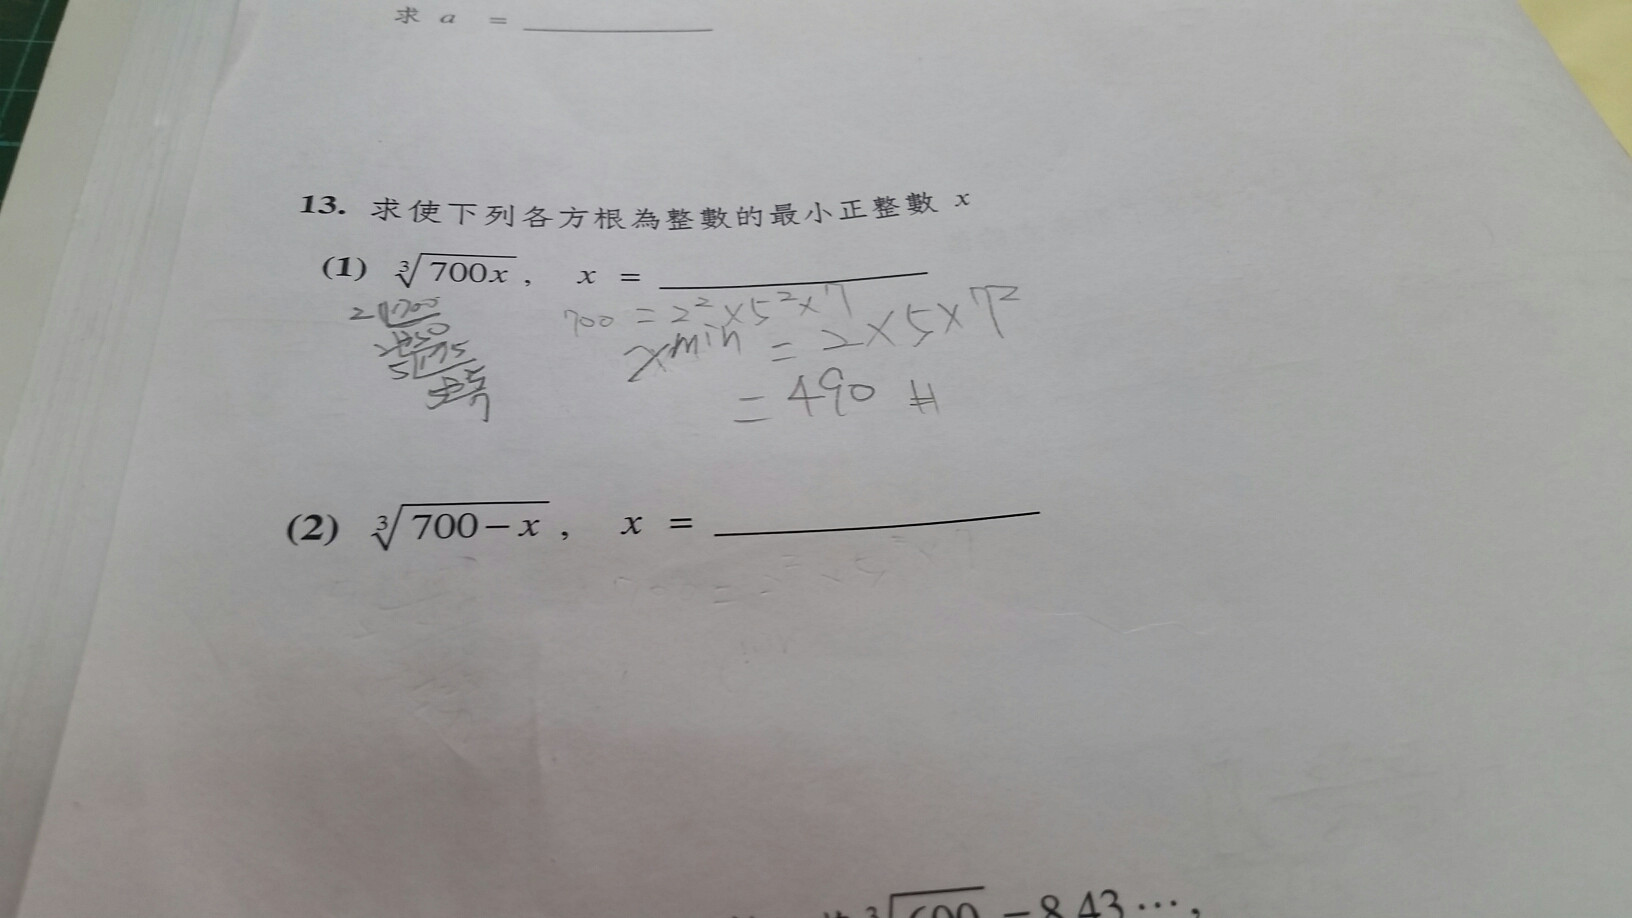 求 a = ________
13. 求使下列各方根為整數的最小正整數 x
(1) ∛700x , x = ________
2 700
700 = 2² × 5² × 7
x min = 2 × 5 × 7²
= 490 #
(2) ∛700−x , x = ________
∛600 = 8.43⋯ ,